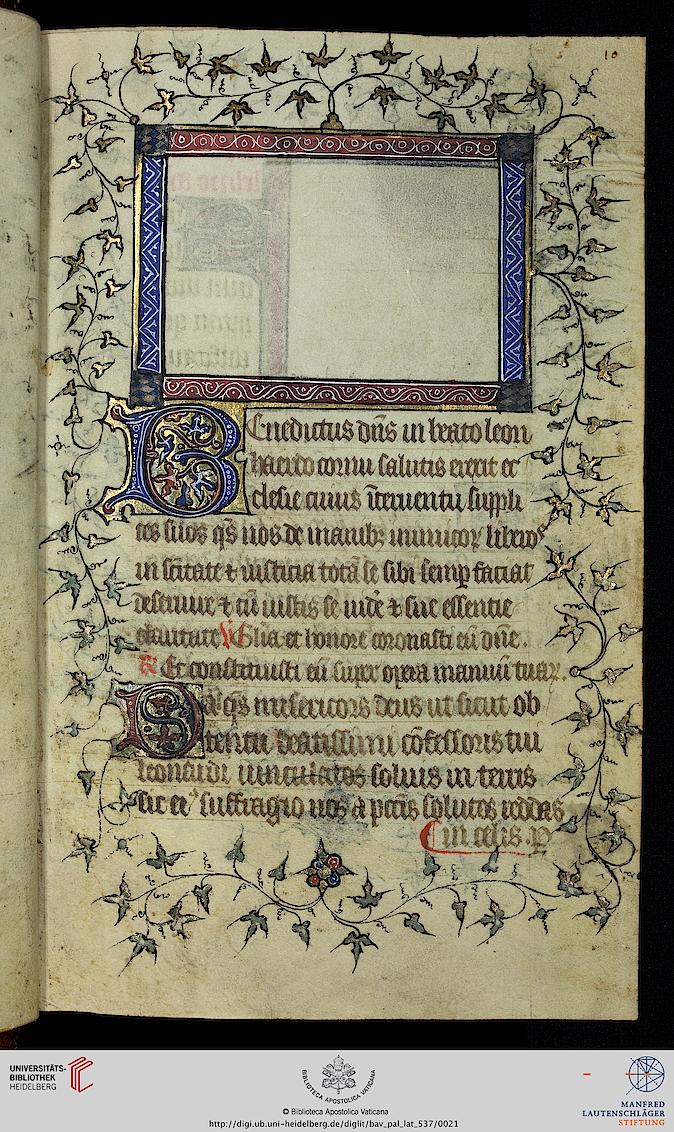 10
Benedictus dñs in beato leon
hardo cornu salutis erexit ec
clesie cuius iterventu suppli
ces suos qs nos de manibꝫ inimicoꝝ libeꝛos
in scitate ⁊ iusticia totā se sibi semp faciat
deservire ⁊ cū iustis se ⁊ sue essentie
claritate V Glia et honore coronasti eū dñe.
R Et constituisti eū super opera manuū tuaꝝ.
Da qs misericors deus ut sicut ob
tentu beatissimi cōfessoris tui
leonardi vinculatos solvis in terris
sic eiꝰ suffragio nos a pctis solutos reddas
in celis. P
UNIVERSITÄTS-
BIBLIOTHEK
HEIDELBERG
BIBLIOTECA APOSTOLICA VATICANA
© Biblioteca Apostolica Vaticana
http://digi.ub.uni-heidelberg.de/diglit/bav_pal_lat_537/0021
MANFRED
LAUTENSCHLÄGER
STIFTUNG